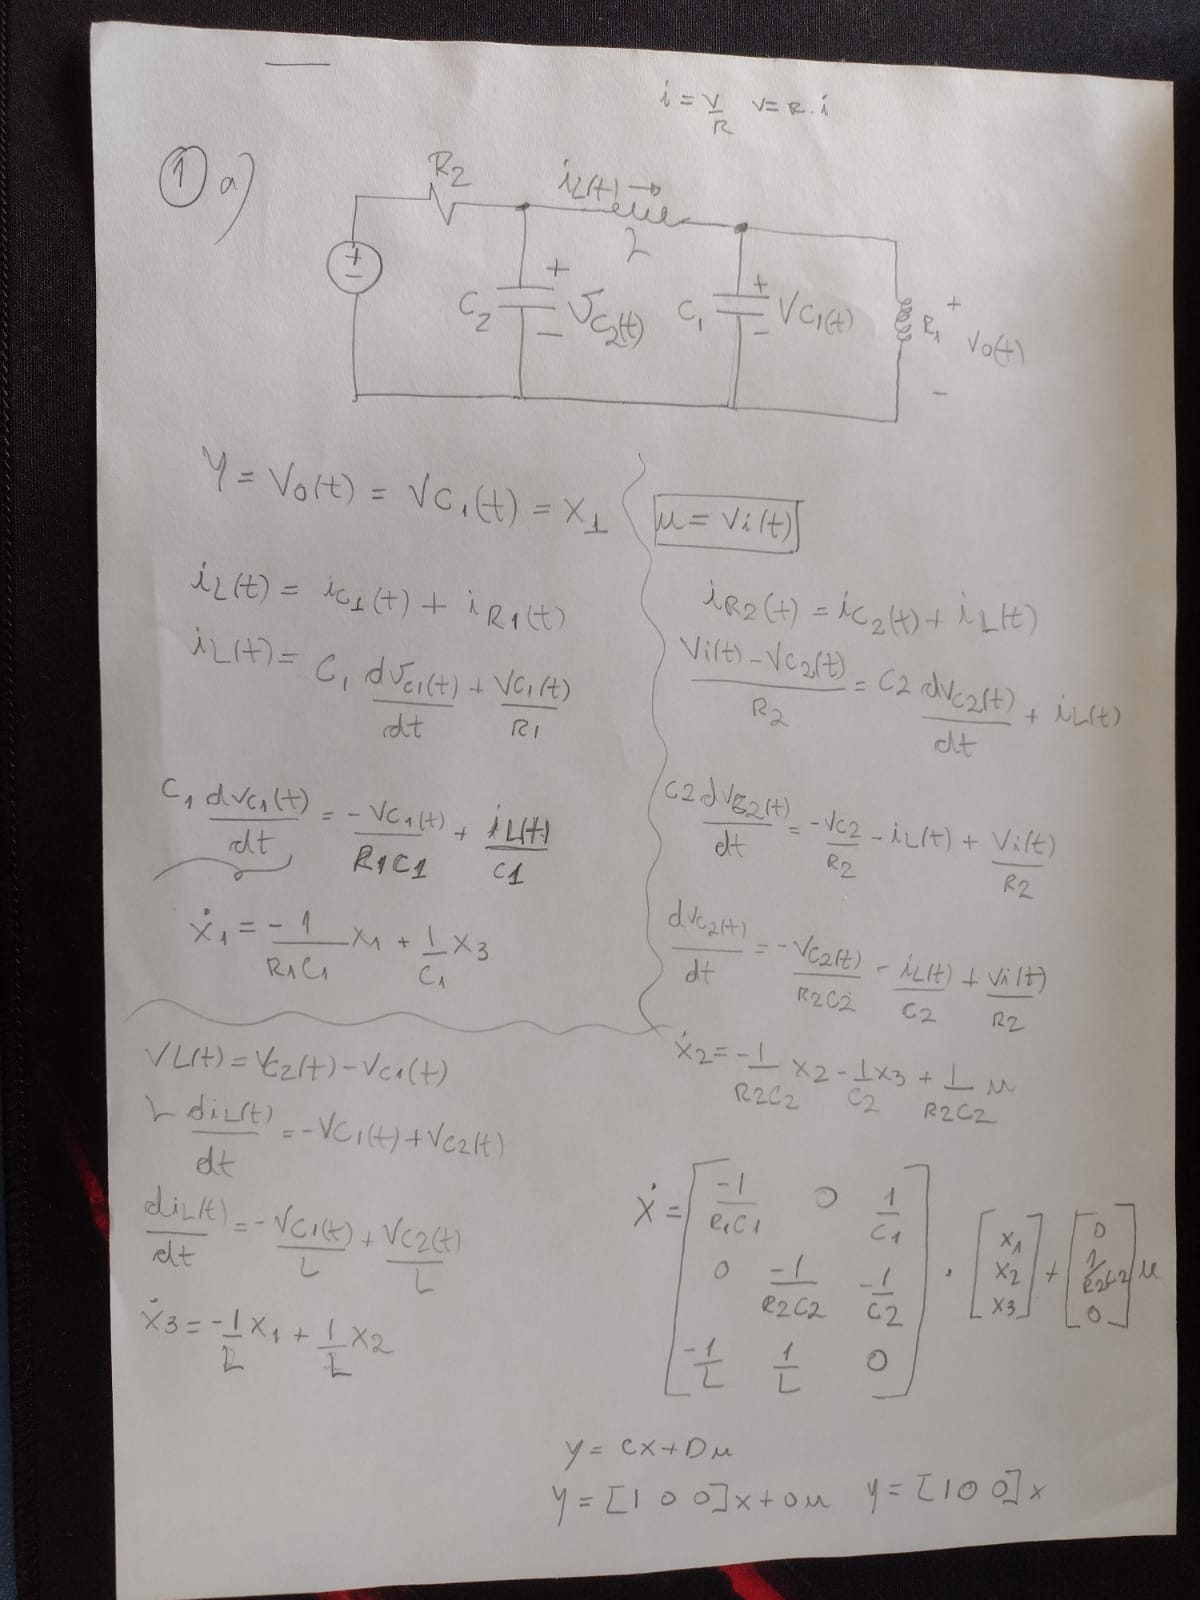 i = V/R V = R . i
1 a)
R2
iL(t) →
L
+ -
C2 + VC2(t) -
C1 + VC1(t) -
R1 + Vo(t) -
Y = Vo(t) = VC1(t) = X1
u = Vi(t)
iL(t) = iC1(t) + iR1(t)
iL(t) = C1 dVC1(t)/dt + VC1(t)/R1
C1 dVC1(t)/dt = -VC1(t)/R1C1 + iL(t)/C1
Ẋ1 = -1/R1C1 X1 + 1/C1 X3
iR2(t) = iC2(t) + iL(t)
Vi(t) - VC2(t)/R2 = C2 dVC2(t)/dt + iL(t)
C2 dVC2(t)/dt = -VC2/R2 - iL(t) + Vi(t)/R2
dVC2(t)/dt = -VC2(t)/R2C2 - iL(t)/C2 + Vi(t)/R2
Ẋ2 = -1/R2C2 X2 - 1/C2 X3 + 1/R2C2 u
VL(t) = VC2(t) - VC1(t)
L diL(t)/dt = -VC1(t) + VC2(t)
diL(t)/dt = -VC1(t)/L + VC2(t)/L
Ẋ3 = -1/L X1 + 1/L X2
Ẋ = [-1/R1C1 0 1/C1
0 -1/R2C2 -1/C2
-1/L 1/L 0] . [X1 X2 X3] + [0 1/R2C2 0] u
y = CX + Du
Y = [1 0 0] x + 0u y = [1 0 0] x